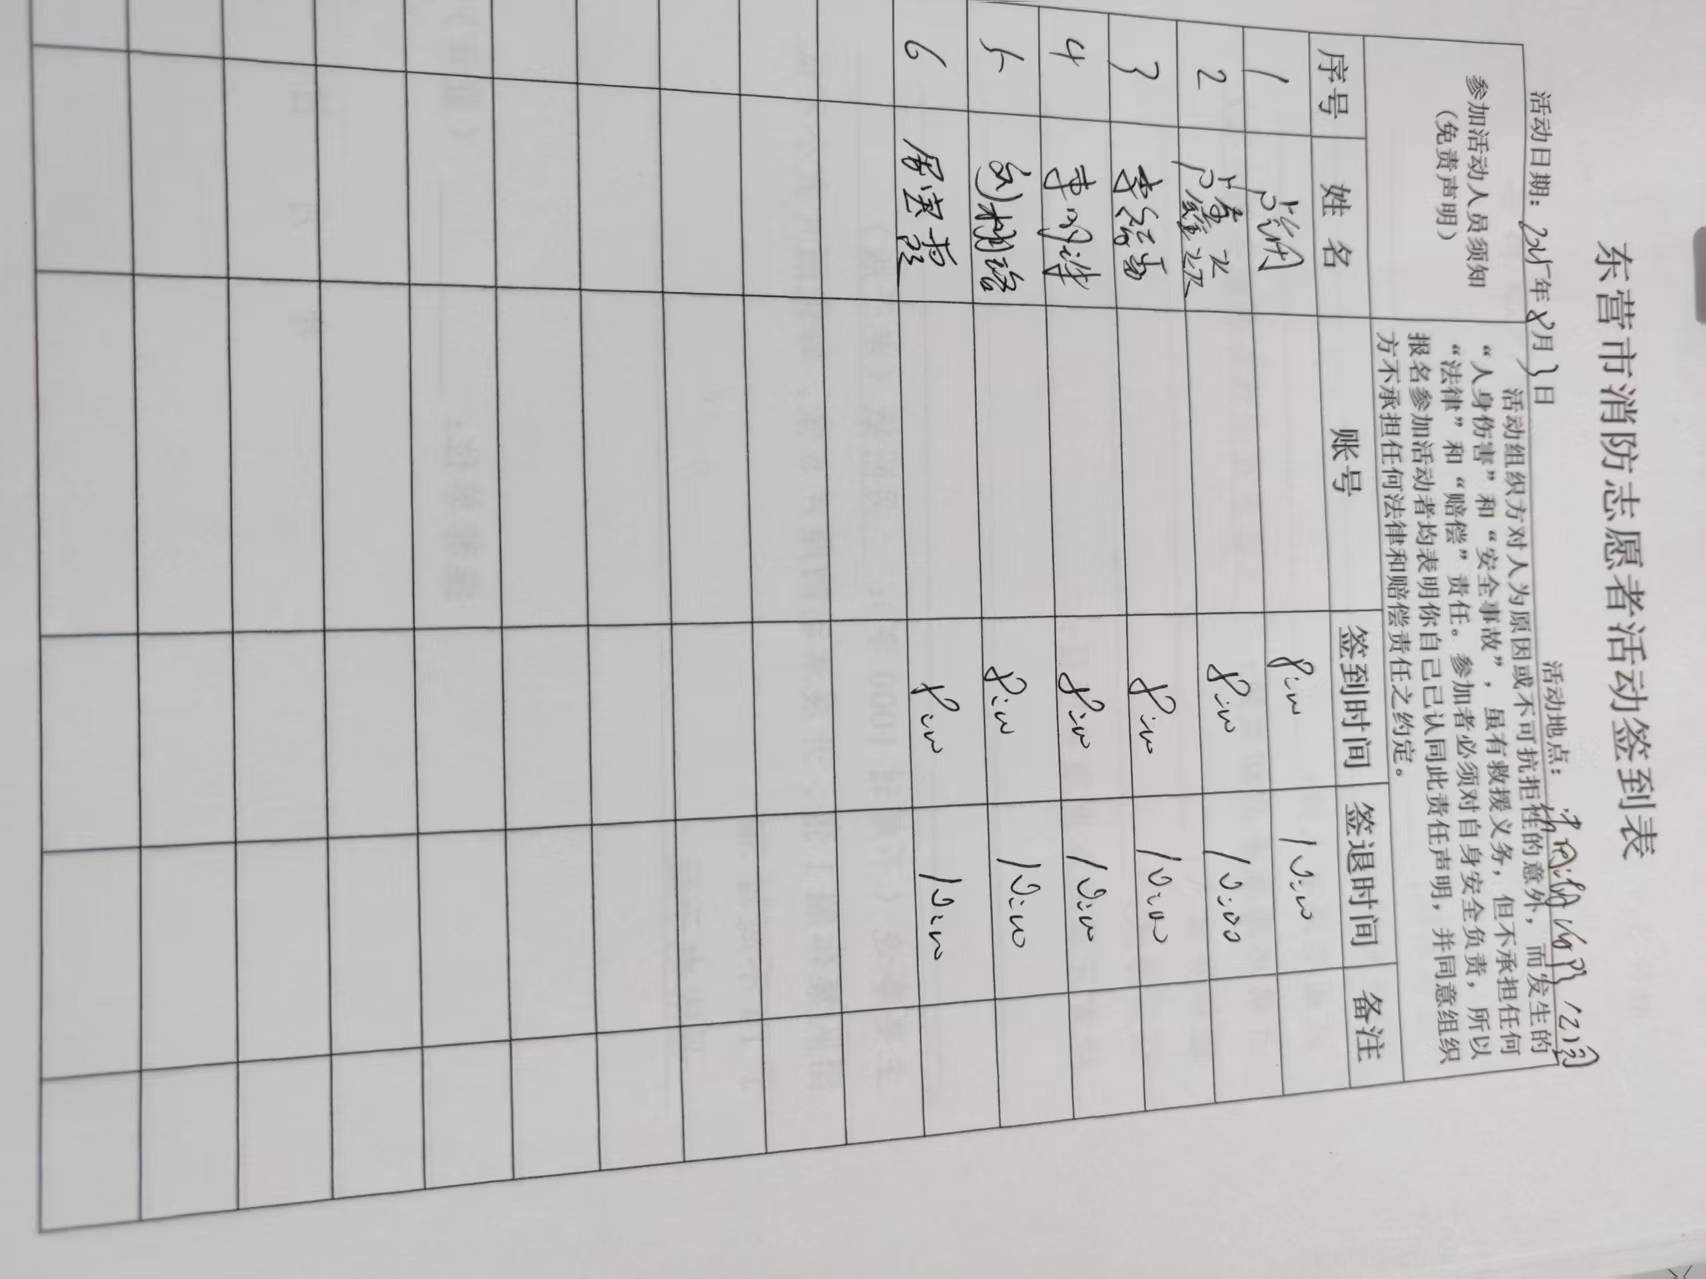 东营市消防志愿者活动签到表
活动日期：2025年8月3日 活动地点：
参加活动人员须知
（免责声明）
活动组织方对人为原因或不可抗拒性的意外，而发生的
“人身伤害”和“安全事故”，虽有救援义务，但不承担任何
“法律”和“赔偿”责任。参加者必须对自身安全负责，所以
报名参加活动者均表明你自己已认同此责任声明，并同意组织
方不承担任何法律和赔偿责任之约定。
序号 姓名 账号 签到时间 签退时间 备注
1 8:00 10:00
2 8:00 10:00
3 8:00 10:00
4 8:00 10:00
5 8:00 10:00
6 8:00 10:00